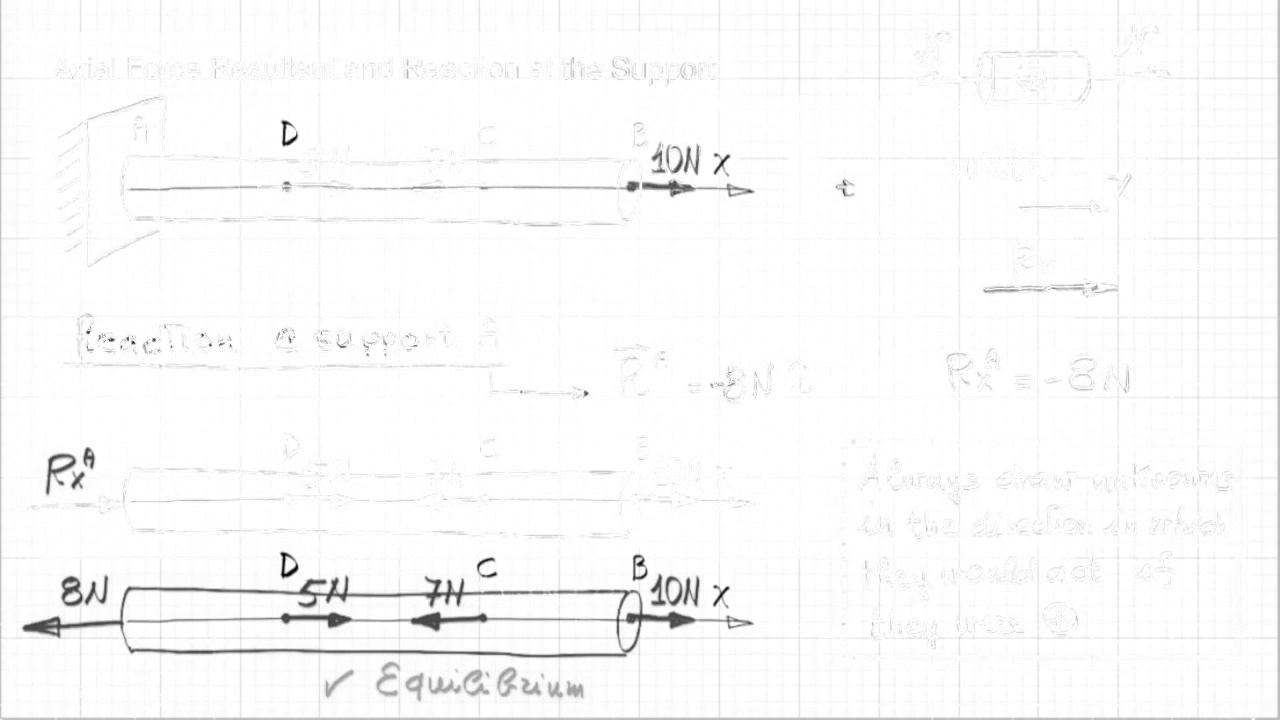 Axial Force Resultant and Reaction at the Support
A D C B
5N 7N 10N x
Reaction @ support A
= -8N
RxA = -8N
RxA
D C B
5N 7N 10N x
Always draw unknowns
in the direction in which
they would act if
they were ⊕
8N D 5N 7N C B 10N x
✓ Equilibrium